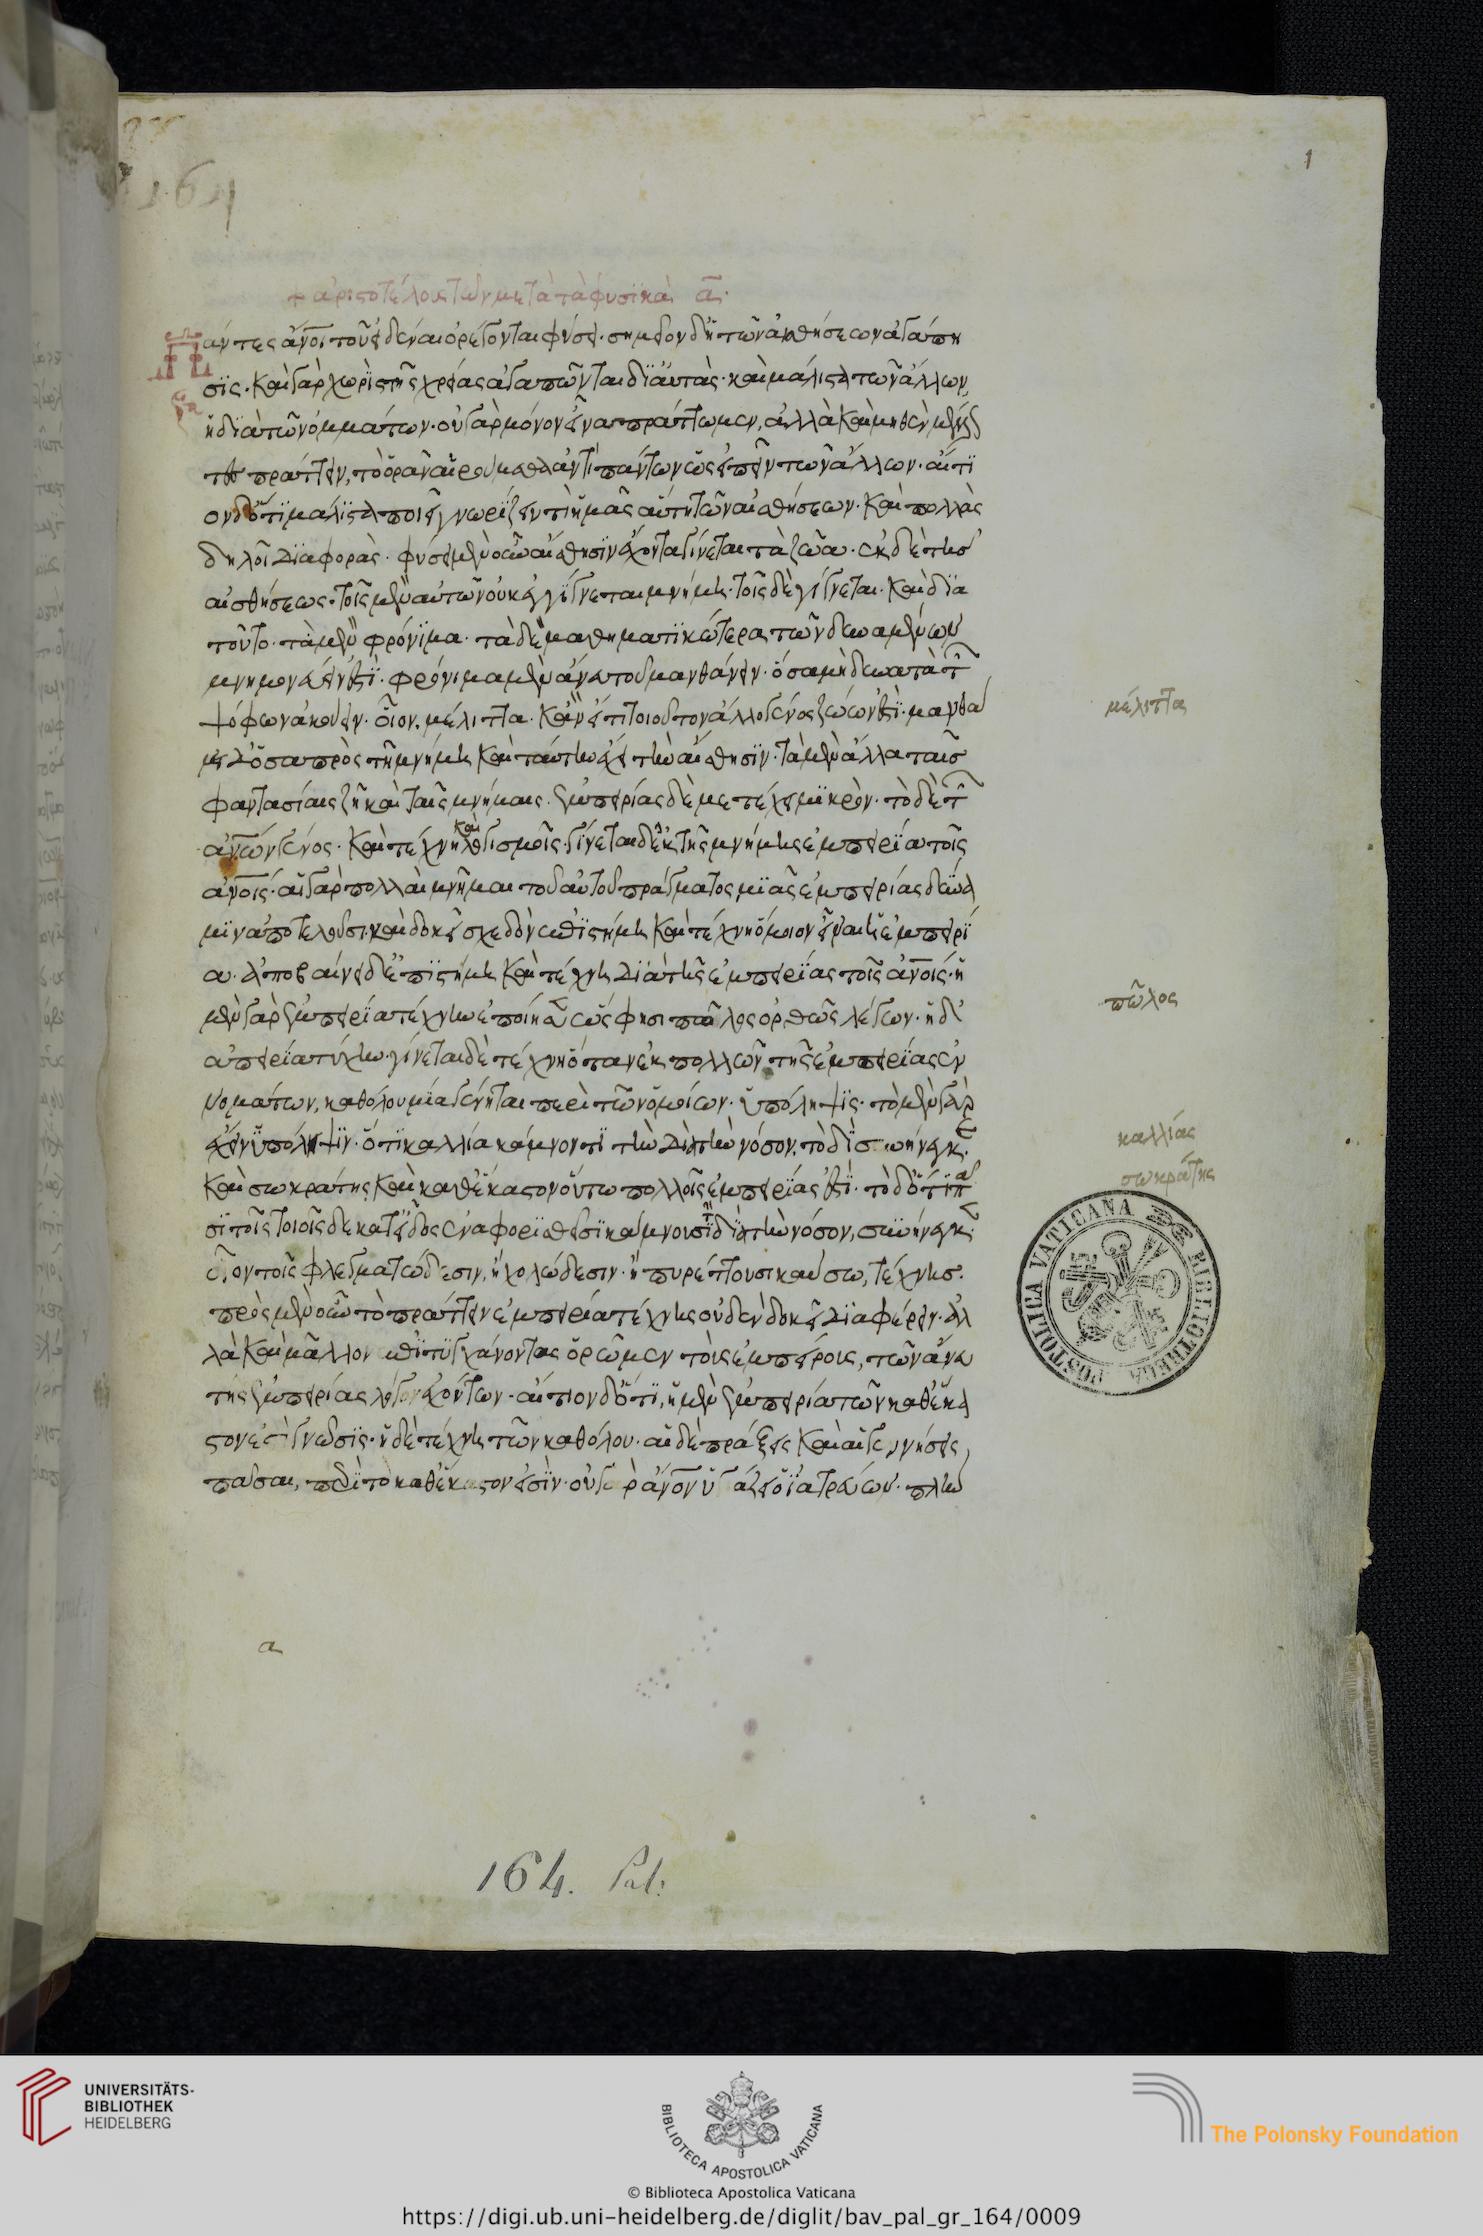 1
164
+ ἀριστοτέλους τῶν μετὰ τὰ φυσϊκὰ α̅·
Πάντες ἄν̅οι τοῦ εἰδέναι ὀρέγονται φύσει· σημεῖον δ' ἡ τῶν αἰσθήσεων ἀγάπη
σϊς· καὶ γὰρ χωρὶς τῆς χρείας ἀγαπῶνται δϊ' αὑτὰς· καὶ μάλιστα τῶν ἄλλων,
ἡ δϊὰ τῶν ὀμμάτων· οὐ γὰρ μόνον ἵνα πράττωμεν, ἀλλὰ καὶ μηθὲν μέλλ
πράττειν, τὸ ὁρᾶν αἱρούμεθα ἀντὶ πάντων ὡς εἰπεῖν τῶν ἄλλων· αἴτϊ
ον δ' ὅτϊ μάλϊστα ποιεῖ γνωρίζειν τϊ ἡμᾶς αὕτη τῶν αἰσθήσεων· καὶ πολλὰς
δηλοῖ δϊαφοράς· φύσει μὲν οὖν αἴσθησϊν ἔχοντα γίνεται τὰ ζῶα· ἐκ δὲ τῆς
αἰσθήσεως· τοῖς μὲν αὐτῶν οὐκ ἐγγίγνεται μνήμη· τοῖς δὲ γίγνεται· καὶ δϊὰ
τοῦτο· τὰ μὲν φρόνϊμα· τὰ δὲ μαθηματϊκώτερα τῶν δυναμένων
μνημονεύειν ἐστϊ· φρόνιμα μὲν ἄνευ τοῦ μανθάνειν· ὅσα μὴ δύναται τ
ψόφων ἀκούειν· οἷον, μέλιττα· κἂν εἴ τι τοιοῦτον ἄλλο γένος ζώων ἐστϊ· μανθά
νει δ' ὅσα πρὸς τῇ μνήμη καὶ ταύτην ἔχει τὴν αἴσθησϊν· τὰ μὲν ἄλλα ταῖς
φαντασίαις ζῇ καὶ ταῖς μνήμαις· ἐμπειρίας δὲ μετέχει μϊκρόν· τὸ δὲ τ
ἀν̅ων γένος· καὶ τέχνη καὶ λογισμοῖς· γίνεται δ' ἐκ τῆς μνήμης ἐμπειρϊα τοῖς
ἀν̅οις· αἱ γὰρ πολλαὶ μνῆμαι τοῦ αὐτοῦ πράγματος μϊᾶς ἐμπειρίας δύνα
μϊν ἀποτελοῦσι· καὶ δοκεῖ σχεδὸν ἐπϊστήμη καὶ τέχνη ὅμοιον εἶναι ἡ ἐμπειρϊ
α· ἀποβαίνει δ' ἐπϊστήμη καὶ τέχνη δϊὰ τῆς ἐμπειρϊας τοῖς ἀν̅οις· ἡ
μὲν γὰρ ἐμπειρϊα τέχνην ἐποίησεν ὥς φησι πῶλος ὀρθῶς λέγων· ἡ δ'
ἀπειρία τύχην· γίνεται δὲ τέχνη ὅταν ἐκ πολλῶν τῆς ἐμπειρίας ἐν
νοημάτων, καθόλου μία γένηται περὶ τῶν ὁμοίων· ὑπόληψϊς· τὸ μὲν γὰρ
ἔχειν ὑπόληψϊν· ὅτϊ καλλία κάμνοντϊ τὴν δὶ τὴν νόσον, τὸ δϊ συνήνεγκε·
καὶ σωκράτης καὶ καθέκαστον οὕτω πολλοῖς ἐμπειρίας ἐστϊ· τὸ δ' ὅτϊ πᾶ
σϊ τοῖς τοιοῖς δε κατ' εἶδος ἓν ἀφορϊσθεῖσϊ κάμνουσϊ τηνδὶ τὴν νόσον, συνήνεγκεν
οἷον τοῖς φλεγματώδεσιν, ἢ χολώδεσιν· ἢ πυρέττουσι καύσω, τέχνης·
πρὸς μὲν οὖν τὸ πράττειν ἐμπειρία τέχνης οὐδὲν δοκεῖ δϊαφέρειν· ἀλ
λὰ καὶ μᾶλλον ἐπϊτυγχάνοντας ὁρῶμεν τοὺς ἐμπείρους, τῶν ἄνευ
τῆς ἐμπειρίας λόγον ἐχόντων· αἴτιον δ' ὅτϊ, ἡ μὲν ἐμπειρία τῶν καθέκα
στον ἐστὶ γνῶσϊς· ἡ δὲ τέχνη τῶν καθόλου· αἱ δὲ πράξεις καὶ αἱ γεννήσεις
πᾶσαι, περὶ τὸ καθέκαστον εἰσϊν· οὐ γὰρ ἄν̅ον ὑγιάζει ὁ ἰατρεύων· πλὴν
μέλιττα
πῶλος
καλλίας
σωκράτης
POSTOLICA VATICANA
BIBLIOTHECA
α
164. Pal:
UNIVERSITÄTS-
BIBLIOTHEK
HEIDELBERG
BIBLIOTECA APOSTOLICA VATICANA
The Polonsky Foundation
© Biblioteca Apostolica Vaticana
https://digi.ub.uni-heidelberg.de/diglit/bav_pal_gr_164/0009